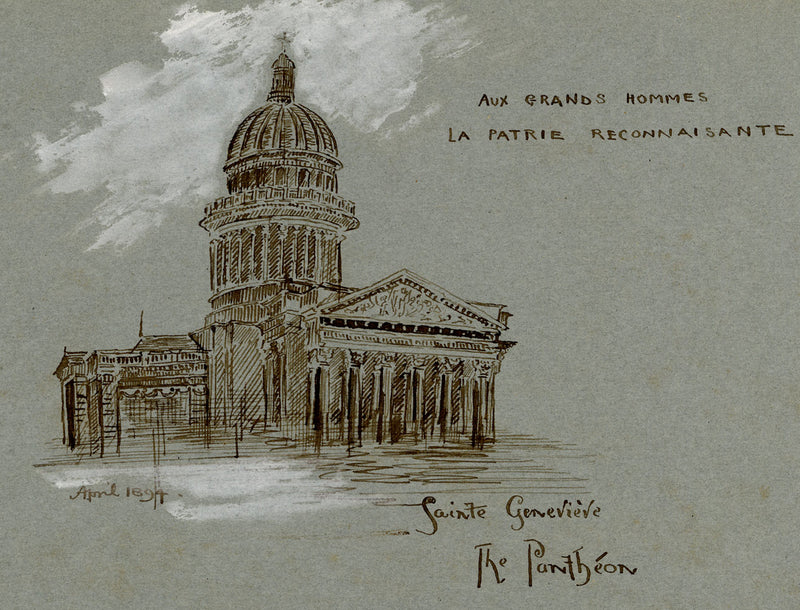 AUX GRANDS HOMMES
LA PATRIE RECONNAISANTE
April 1894.
Sainte Geneviève
The Panthéon